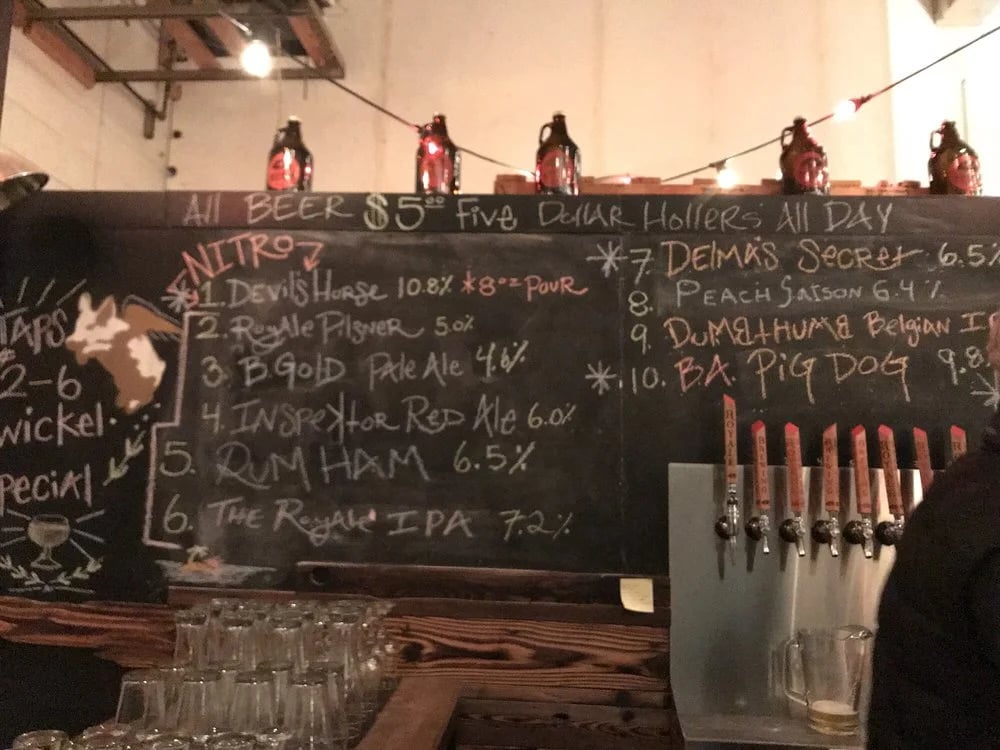 All BEER $5.00 Five Dollar Hollers All DAY
NITRO
1. Devil's Horse 10.8% *8oz Pour
2. Royale Pilsner 5.0%
3. B Gold Pale Ale 4.6%
4. Inspektor Red Ale 6.0%
5. RUM HAM 6.5%
6. The Royale IPA 7.2%
7. DELMA'S Secret 6.5%
8. PEACH SAISON 6.4%
9. DUMBTHUMB Belgian I
10. B.A. PiG DOG 9.8
TAPS
2-6
wickel
pecial
ROYALE